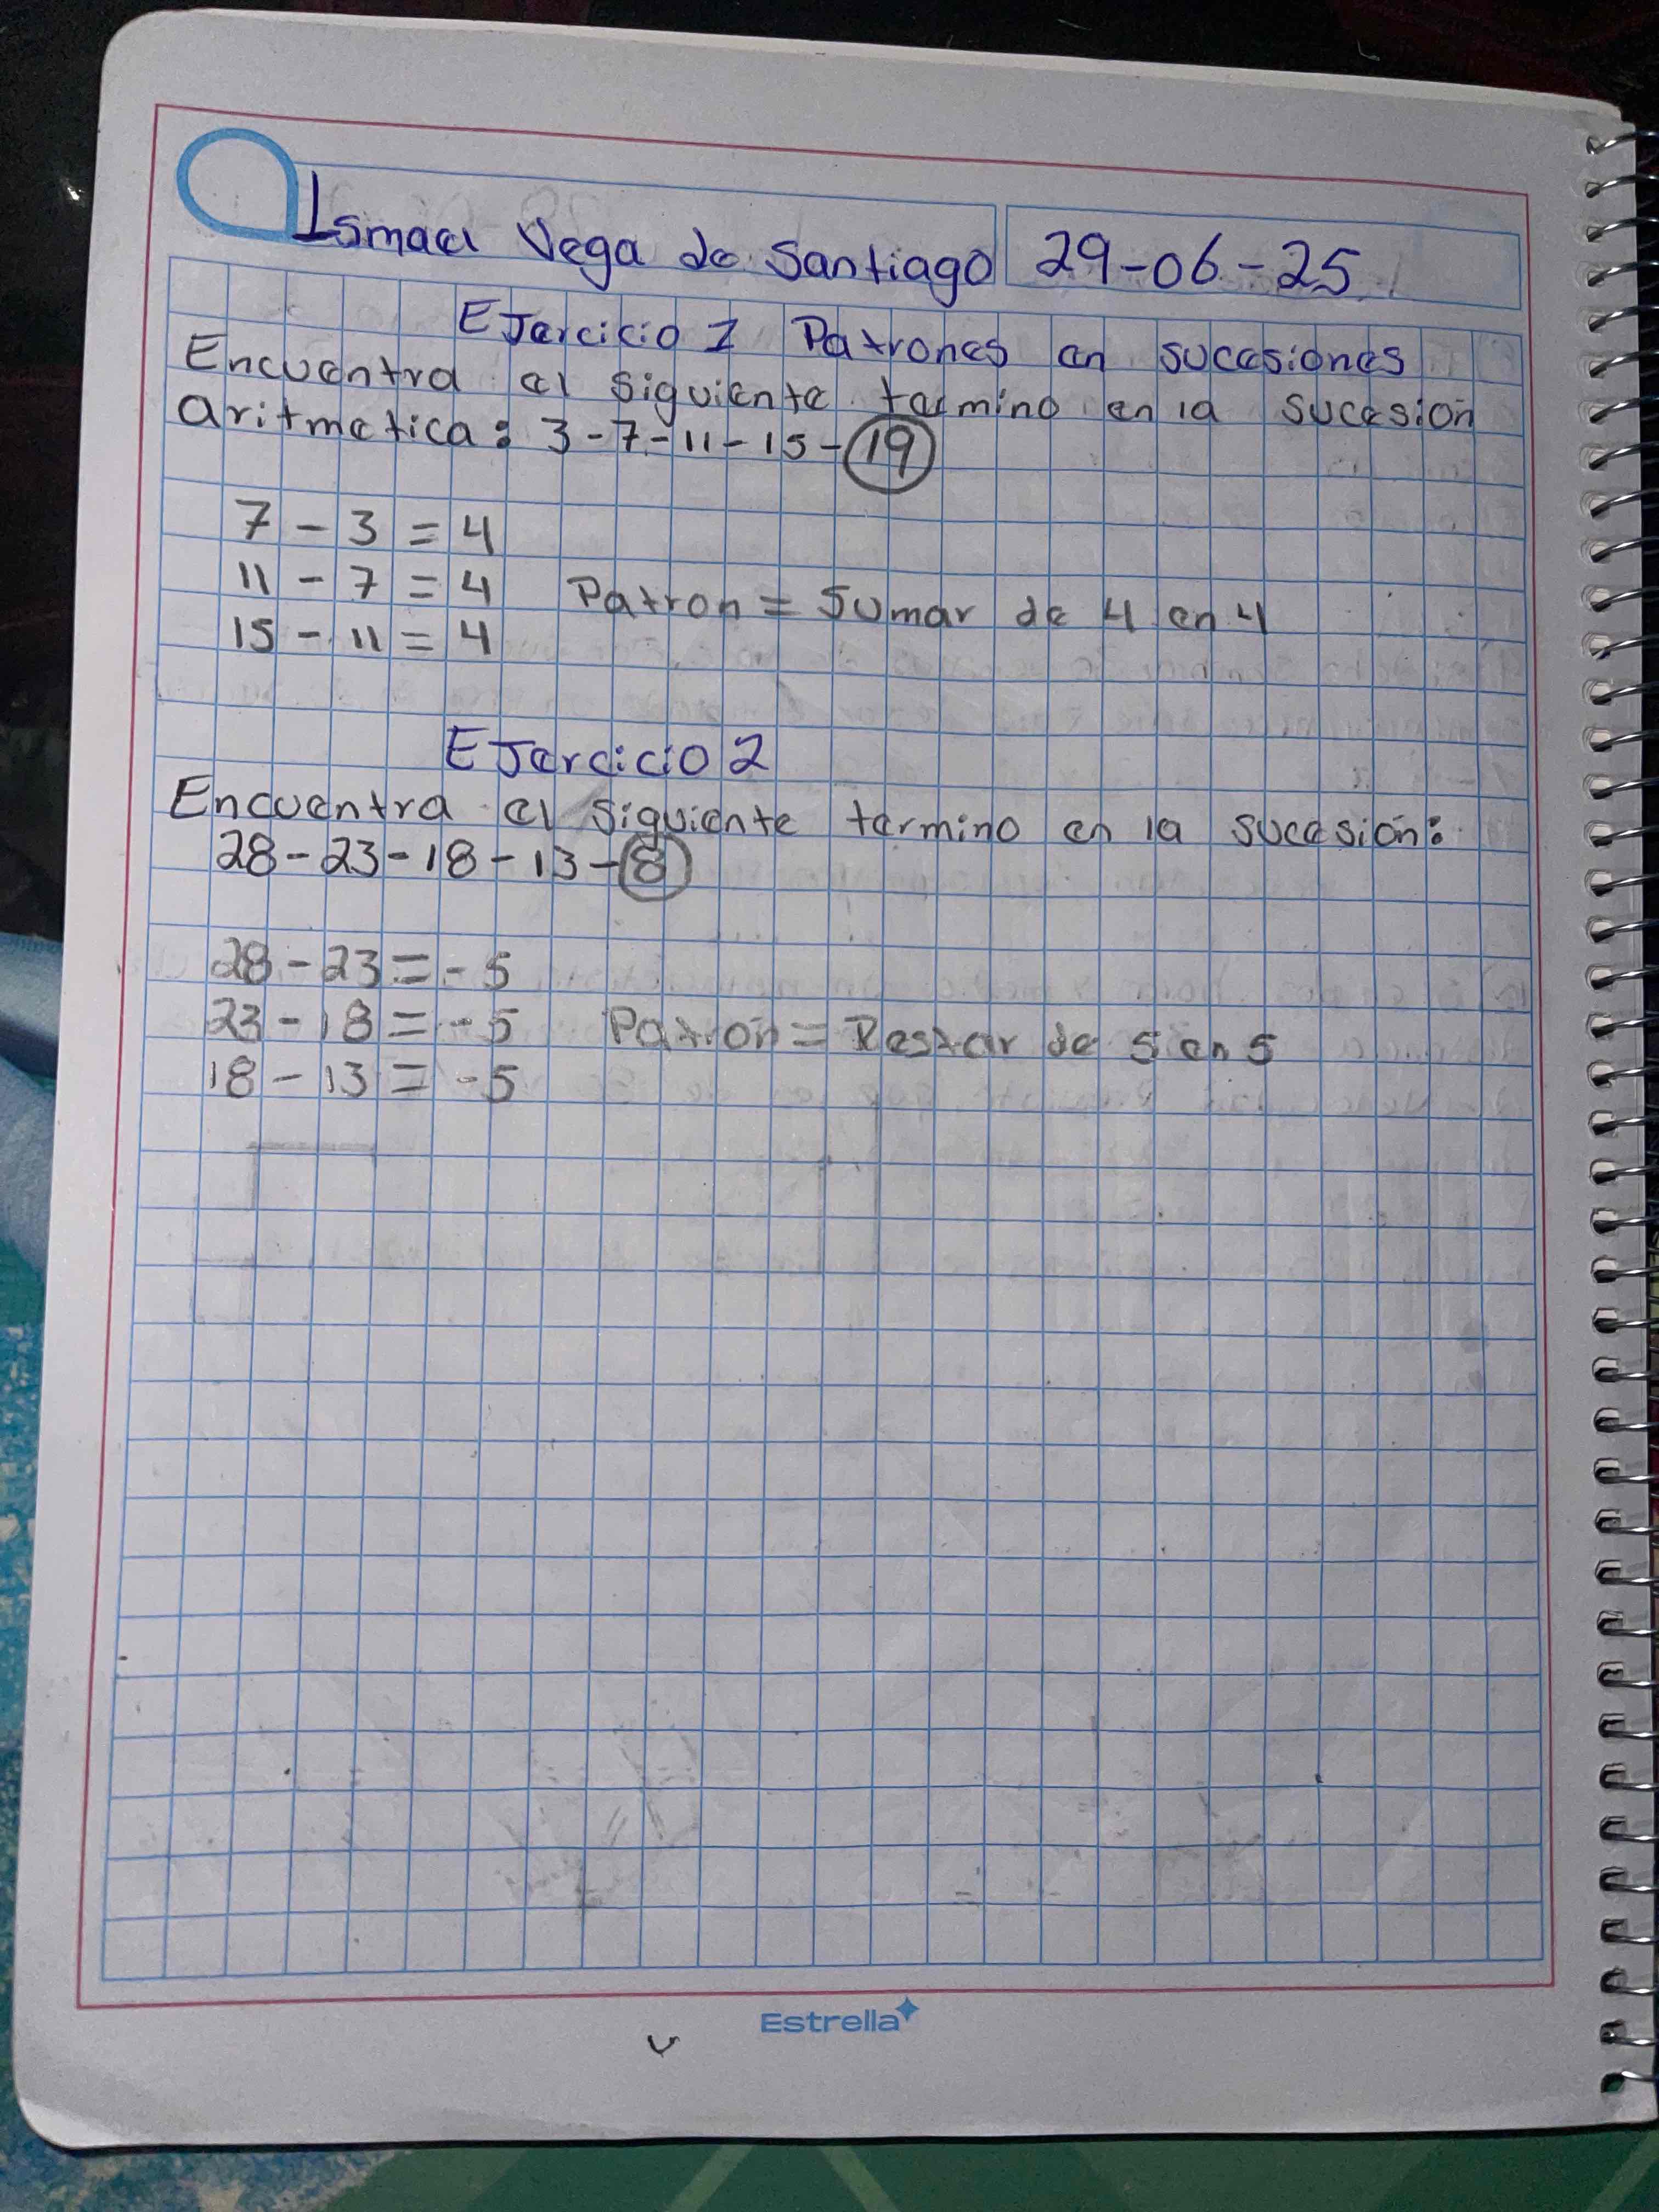 Ismael Vega de Santiago 29-06-25
Ejercicio 1 Patrones en sucesiones
Encuentra el siguiente termino en la sucesion
aritmetica: 3-7-11-15-19
7 - 3 = 4
11 - 7 = 4 Patron = Sumar de 4 en 4
15 - 11 = 4
Ejercicio 2
Encuentra el siguiente termino en la sucesión:
28-23-18-13-8
28 - 23 = - 5
23 - 18 = - 5 Patrón = Restar de 5 en 5
18 - 13 = - 5
Estrella